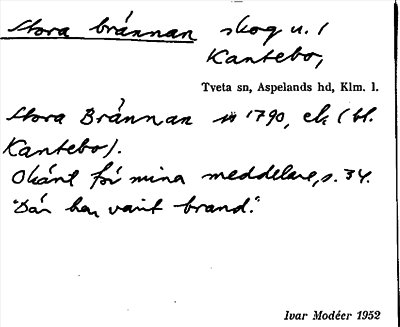 Stora brännan skog u. (
Kantebo,
Tveta sn, Aspelands hd, Klm. l.
Stora Brännan 1790, ek (bl.
Kantebo).
Okänt för mina meddelare, s. 34.
"Där har varit brand."
Ivar Modéer 1952